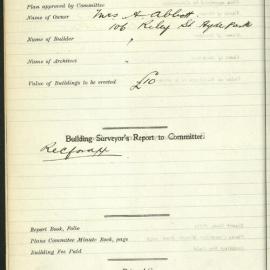 Plan approved by Committee
Name of Owner Mrs A. Abbott.
106 Riley St Hyde Park
Name of Builder "
Name of Architect "
Value of Buildings to be erected £10
Building Surveyor's Report to Committee.
Rec for app
Report Book, Folio
Plans Committee Minute Book, page
Building Fee Paid